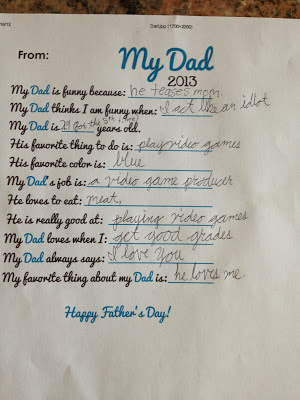 Dad.jpg (1700×2200)
From:
My Dad
2013
My Dad is funny because: he teases mom.
My Dad thinks I am funny when: I act like an idiot
My Dad is 29 (for the 5th time) years old.
His favorite thing to do is: play video games
His favorite color is: blue
My Dad's job is: a video game producer
He loves to eat: meat.
He is really good at: playing video games
My Dad loves when I: get good grades
My Dad always says: I love you
My favorite thing about my Dad is: he loves me.
Happy Father's Day!